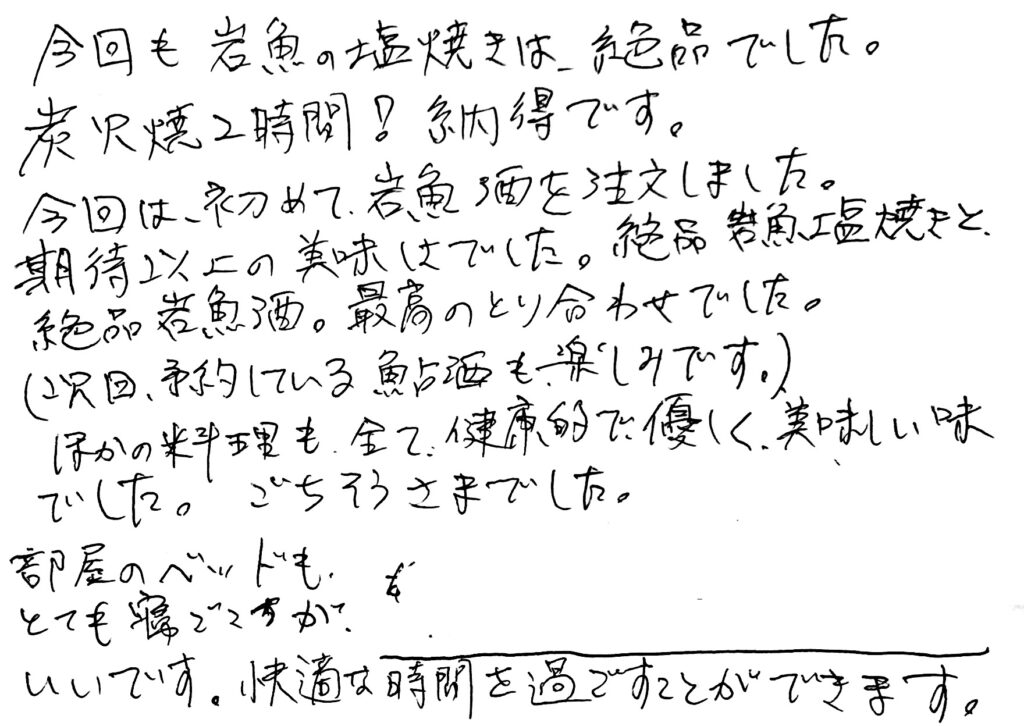 今回も岩魚の塩焼きは、絶品でした。
炭火焼2時間！納得です。
今回は、初めて、岩魚酒を注文しました。
期待以上の美味さでした。絶品岩魚塩焼きと、
絶品岩魚酒。最高のとり合わせでした。
(次回、予約している魚占酒も、楽しみです。)
ほかの料理も、全て、健康的で、優しく、美味しい味
でした。ごちそうさまでした。
部屋のベッドも、
とても寝ごこちが、
いいです。快適な時間を過ごすことができます。